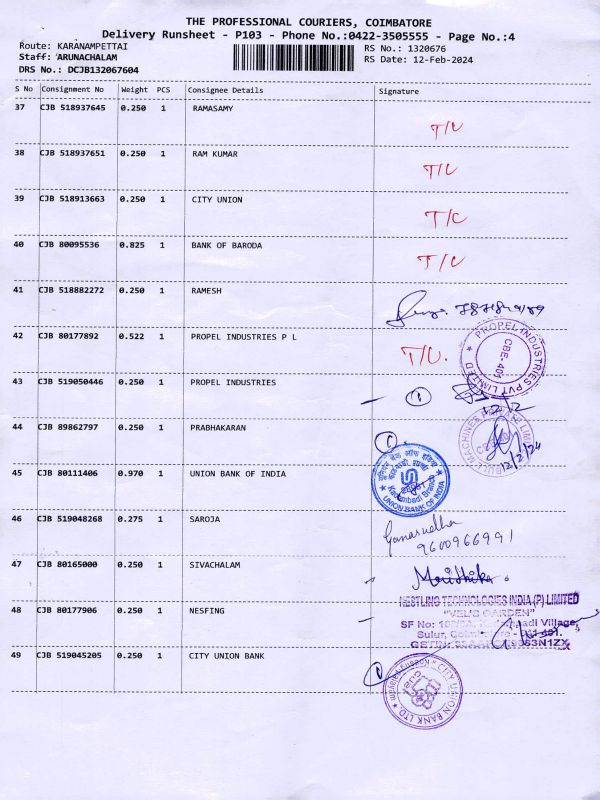 THE PROFESSIONAL COURIERS, COIMBATORE
Delivery Runsheet - P103 - Phone No.:0422-3505555 - Page No.:4
Route: KARANAMPETTAI RS No.: 1320676
Staff: ARUNACHALAM RS Date: 12-Feb-2024
DRS No.: DCJB132067604
S No Consignment No Weight PCS Consignee Details Signature
37 CJB 518937645 0.250 1 RAMASAMY T/C
38 CJB 518937651 0.250 1 RAM KUMAR T/C
39 CJB 518913663 0.250 1 CITY UNION T/C
40 CJB 80095536 0.825 1 BANK OF BARODA T/C
41 CJB 518882272 0.250 1 RAMESH
42 CJB 80177892 0.522 1 PROPEL INDUSTRIES P L T/C.
PROPEL INDUSTRIES PVT LIMITED
CBE- 401
43 CJB 519050446 0.250 1 PROPEL INDUSTRIES 1
12/2
44 CJB 89862797 0.250 1 PRABHAKARAN
12/2/24
45 CJB 80111406 0.970 1 UNION BANK OF INDIA
यूनियन बैंक ऑफ इंडिया
Kadambadi Branch
UNION BANK OF INDIA
46 CJB 519048268 0.275 1 SAROJA
9600966991
47 CJB 80165000 0.250 1 SIVACHALAM
48 CJB 80177906 0.250 1 NESFING
NESTLING TECHNOLOGIES INDIA (P) LIMITED
"VEL'S GARDEN"
SF No: Village,
Sulur,
GSTIN:
49 CJB 519045205 0.250 1 CITY UNION BANK 1
CITY UNION BANK LTD.